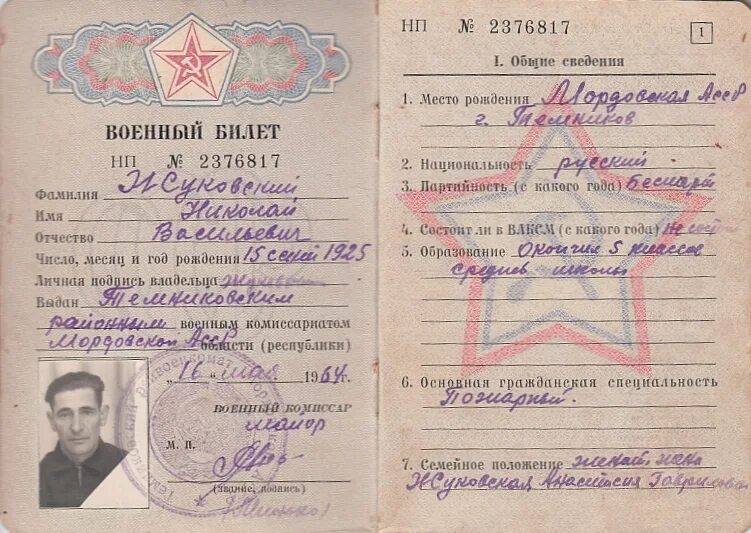 ВОЕННЫЙ БИЛЕТ
НП № 2376817
Фамилия Жуковский
Имя Николай
Отчество Васильевич
Число, месяц и год рождения 15 сент 1925
Личная подпись владельца
Выдан Темниковским
районным военным комиссариатом
Мордовской АССР области (республики)
„16 " мая 1964г.
ВОЕННЫЙ КОМИССАР
майор
М. П.
(звание, подпись)
НП № 2376817
1
I. Общие сведения
1. Место рождения Мордовская АССР
г. Темников
2. Национальность русский
3. Партийность (с какого года) беспарт
4. Состоит ли в ВЛКСМ (с какого года) не сост
5. Образование Окончил 5 классов
средней школы
6. Основная гражданская специальность
Пожарный.
7. Семейное положение женат, жена
Жуковская Анастасия Гавриловна